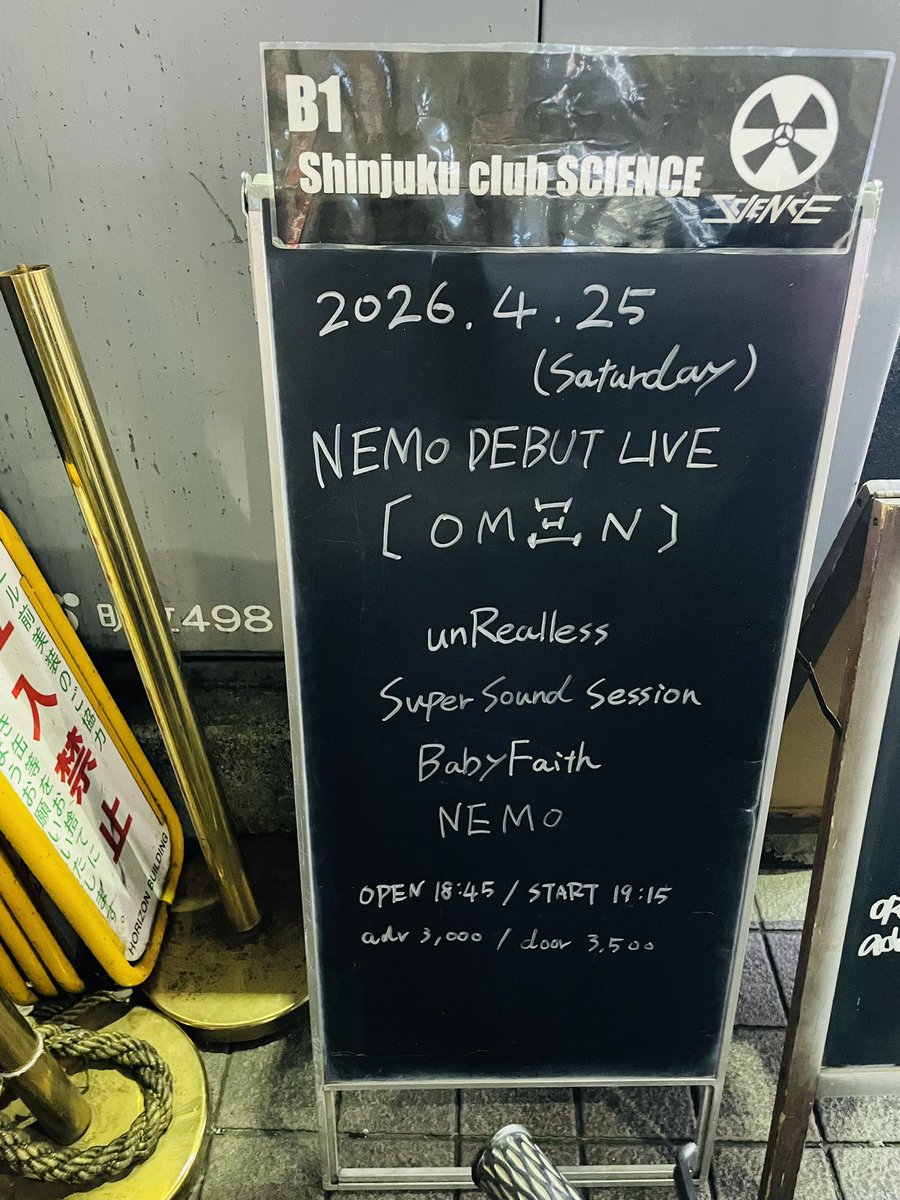 B1
Shinjuku club SCIENCE
SCIENCE
2026.4.25
(Saturday)
NEMO DEBUT LIVE
[OMΞN]
unRealless
Super Sound Session
BabyFaith
NEMO
OPEN 18:45 / START 19:15
adv 3,000 / door 3,500
498
入禁止
前美装のご協力
き缶等をお捨てに
ようお願いいたします。
HORIZON BUILDING